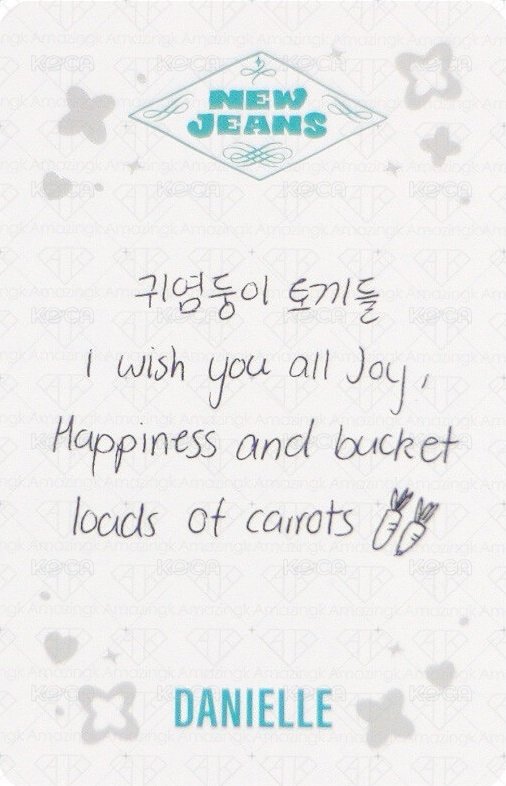 NEW
JEANS
귀염둥이 토끼들
I wish you all Joy,
Happiness and bucket
loads of carrots
DANIELLE